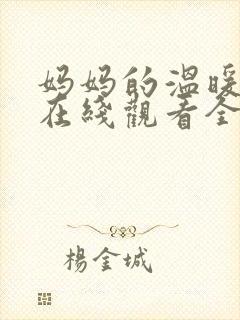 妈妈的温暖
在线觀看全
楊金城